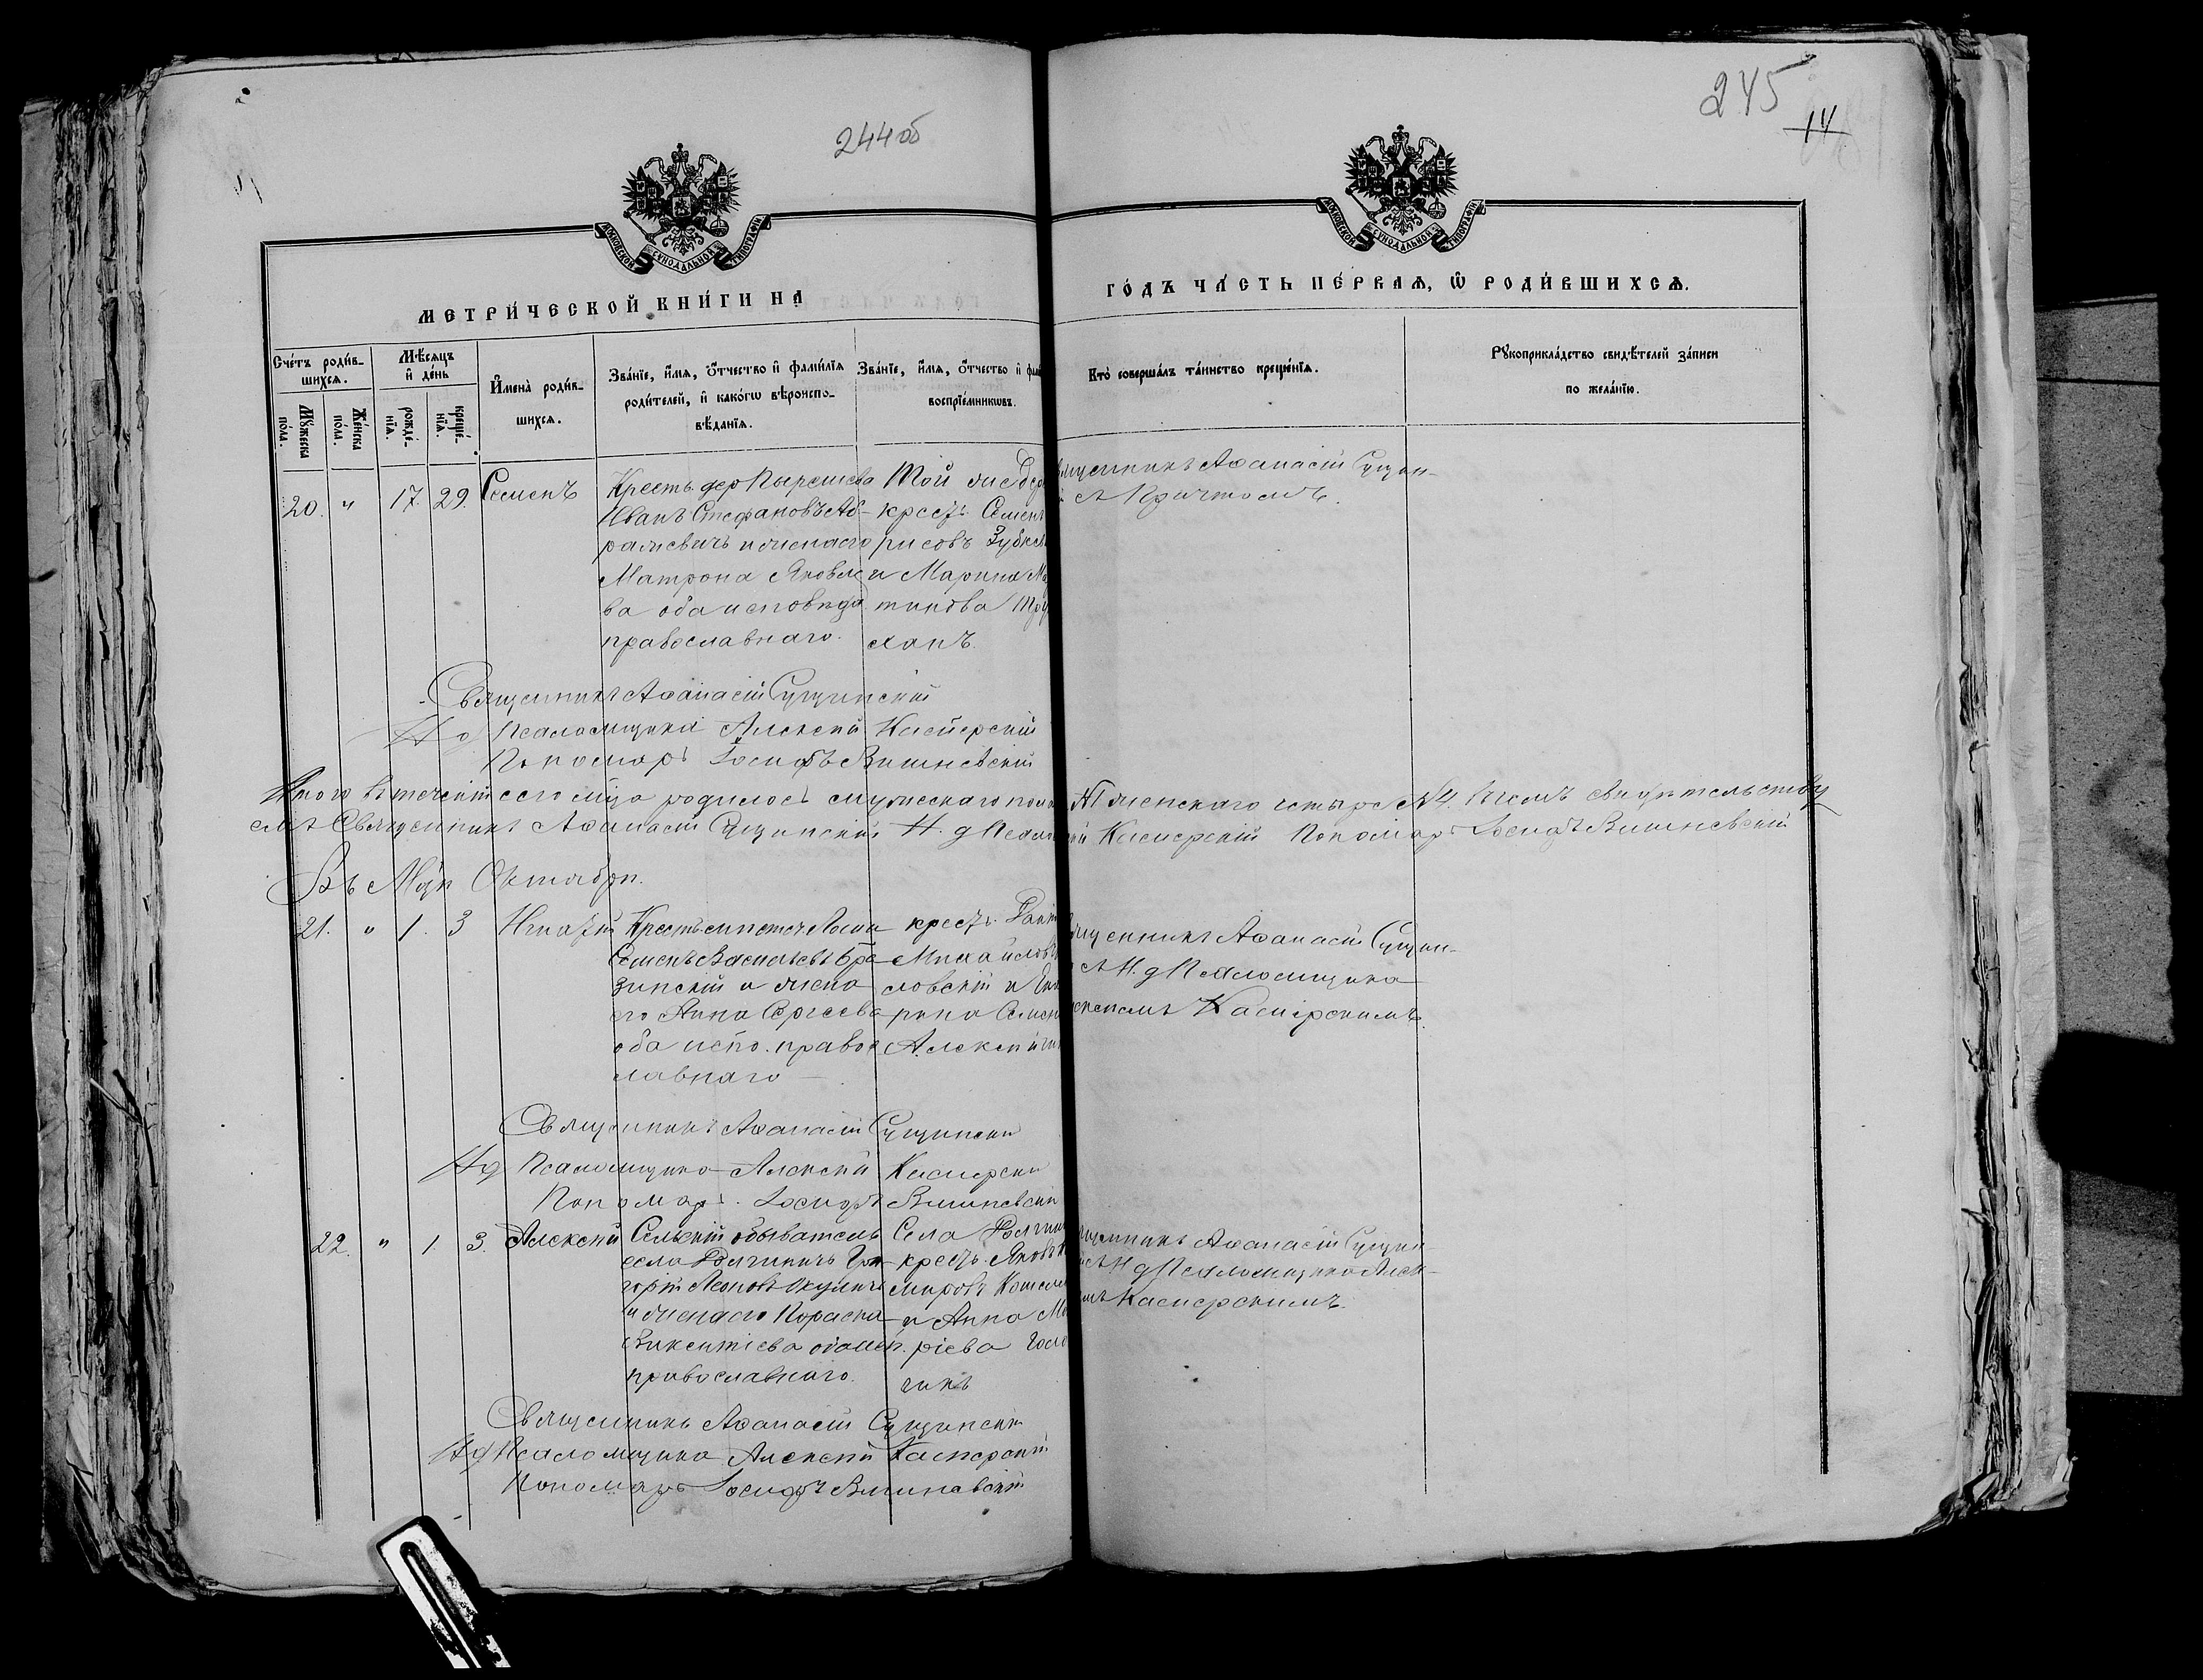 244 об
245
14
МОСКОВСКОЙ СУНОДАЛЬНОЙ ТИПОГРАФІИ
МОСКОВСКОЙ СУНОДАЛЬНОЙ ТИПОГРАФІИ
МЕТРИ́ЧЕСКОЙ КНИ́ГИ НА
ГО́ДЪ ЧА́СТЬ ПЕ́РВАѦ, Ѡ РОДИ́ВШИХСѦ.
Сче́тъ роди́в-
шихсѧ.
Му́жеска по́ла.
Же́нска по́ла.
Мѣ́сѧцъ и де́нь
рожде́-
нїѧ.
креще́-
нїѧ.
Имена̀ роди́в-
шихсѧ.
Зва́нїе, и́мѧ, о́тчество и фами́лїѧ
роди́телей, и како́гѡ вѣроиспо-
вѣ́данїѧ.
Зва́нїе, и́мѧ, о́тчество и фам
воспрїе́мникѡвъ.
Кто̀ соверша́лъ та́инство креще́нїѧ.
Рукоприкла́дство свидѣ́телей за́писи
по жела́нїю.
20. " 17. 29. Семенъ
Иванъ Стефановъ Аб-
рамевичъ и жена его
Матрона Яковле
ва оба исповѣда
православнаго.
Той же дер
крест. Семенъ
рисовъ
и Марина
ханъ.
щенникъ Аѳанасій Сущин-
съ Причтомъ.
Священникъ Аѳанасій Сущинскій
И д Псаломщика Алексѣй Касперскій
Пономарь Іосифъ Вишневскій
Итого въ теченіи сего м-ца родилось мужескаго пола Женскаго четыре №4. въ чемъ свидѣтельству
емъ Священникъ Аѳанасій Сущинскій И. д Псалом й Касперскій Пономарь Іосифъ Вишневскій
Въ М-цѣ Октябрѣ.
21. " 1. 3 Игнатій
Семенъ Васильевъ Бра
зинскій и жена
его Анна Сергеева
оба испо. правос
лавнаго
крест.
Михайловъ
ловскій и Ека
рина Семен
Алексѣй
щенникъ Аѳанасій Сущин-
съ И. д Псаломщика
ксѣемъ Касперскимъ.
Священникъ Аѳанасій Сущинскій
И д Псаломщика Алексѣй Касперскій
Пономарь Іосифъ Вишневскій
22. " 1. 3. Алексѣй
Сельскій обыватель
села Гри
горій Леоновъ
и жена его Параскева
Викентіева оба исп.
православнаго.
Села
крест. Яковъ
и Анна
рiева
чикъ
щенникъ Аѳанасій Сущин
съ И д Псаломщика Алек-
мъ Касперскимъ.
Священникъ Аѳанасій Сущинскій
И д Псаломщика Алексѣй Касперскій
Пономарь Іосифъ Вишневскій